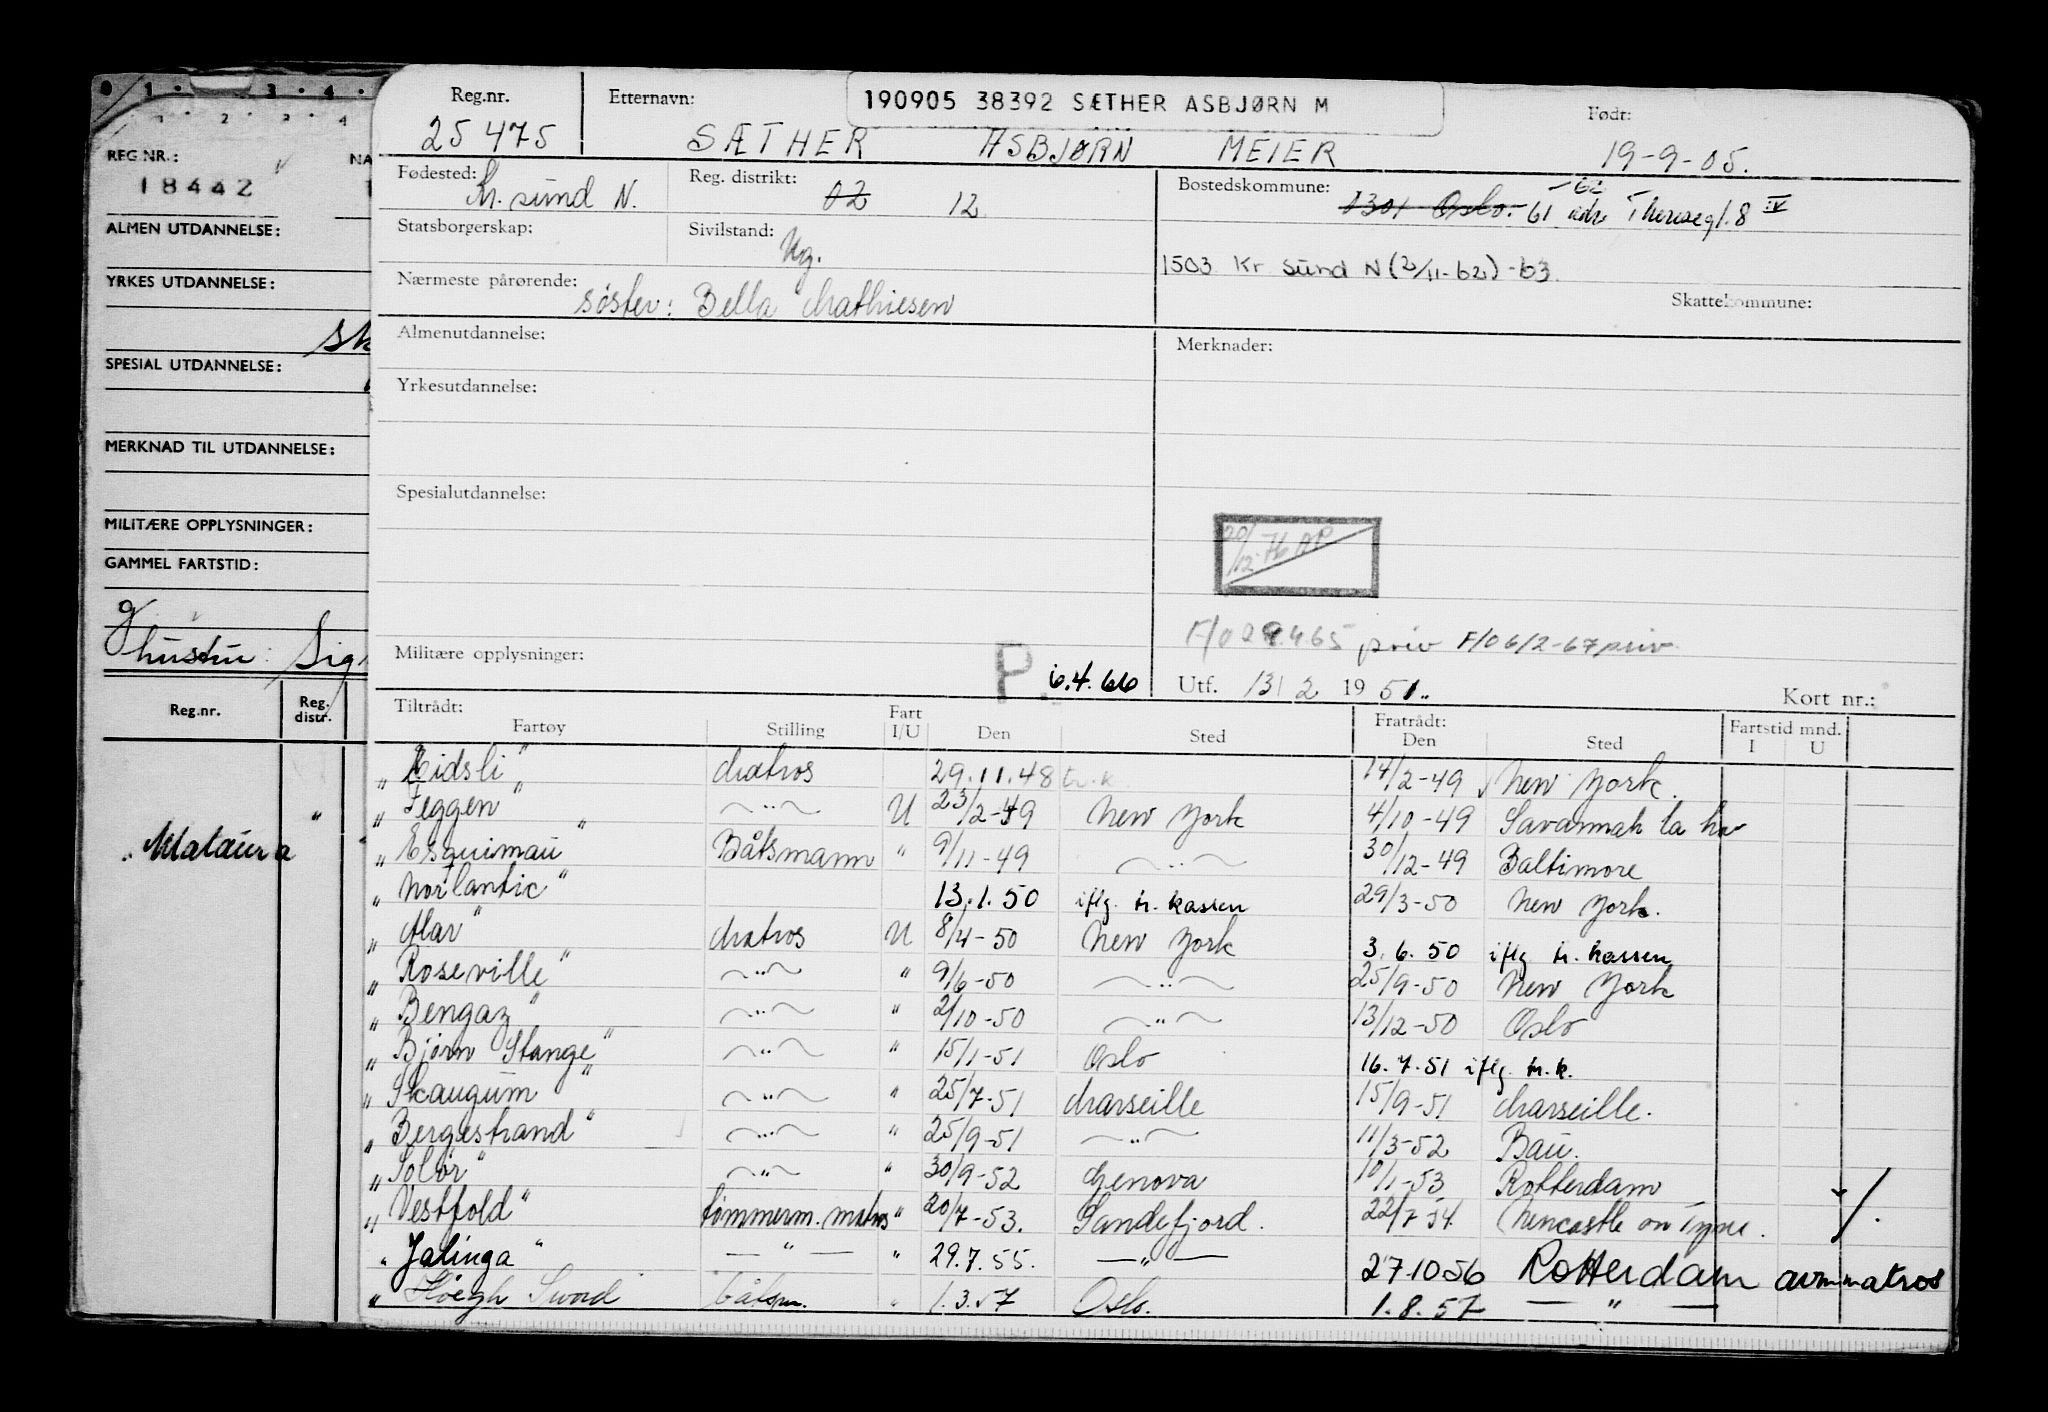 REG.NR.:
18442
ALMEN UTDANNELSE:
YRKES UTDANNELSE:
SPESIAL UTDANNELSE:
MERKNAD TIL UTDANNELSE:
MILITÆRE OPPLYSNINGER:
GAMMEL FARTSTID:
hustru: Sig
Reg.nr. Reg. distr.
Mataura
Reg.nr. Etternavn: 190905 38392 SÆTHER ASBJØRN M Født:
25475 SÆTHER ASBJØRN MEIER 19-9-05.
Fødested: Kr. sund N. Reg. distrikt: 02 12 Bostedskommune: 0301 Oslo - 61 -62 adr. Theresegt. 8 IV
Statsborgerskap: Sivilstand: Ug.
1503 Kr sund N (2/11-62) -63.
Nærmeste pårørende: søster: Bella Mathiesen Skattekommune:
Almenutdannelse: Merknader:
Yrkesutdannelse:
Spesialutdannelse:
20/12-76 AP
F/0 29.4.65 priv F/0 6/2-67 priv
Militære opplysninger: P. 6.4.66 Utf. 13/2 1951. Kort nr.:
Tiltrådt: Fartøy Stilling Fart I/U Den Sted Fratrådt: Den Sted Fartstid mnd. I U
"Lidsli" Matros 29.11.48 tr.k. 14/2-49 New York.
"Feggen" —"— U 23/2-49 New York 4/10-49 Savannah la
"Esquimau" Båtsmann " 9/11-49 —"— 30/12-49 Baltimore
"Norlantic" 13.1.50 iflg. tr. kassen 29/3-50 New York.
"Mar" Matros U 8/4-50 New York 3.6.50 iflg tr. kassen
"Roseville" —"— " 9/6-50 —"— 25/9-50 New York
"Bengaz" —"— " 2/10-50 —"— 13/12-50 Oslo
"Bjørn Stange" —"— " 15/1-51 Oslo 16.7.51 iflg. tr.k.
"Skaugum" —"— " 25/7-51 Marseille 15/9-51 Marseille.
"Bergestrand" —"— " 25/9-51 —"— 11/3-52 Bau.
"Solør" —"— " 30/9-52 Genova 10/1-53 Rotterdam
"Vestfold" tømmerm. matros " 20/7-53. Sandefjord. 22/7-54. Newcastle on Tyne.
"Jalinga" —"— " 29.7.55. —"— 27.10.56 Rotterdam avm matros
"Høegh Sword båtsm. " 1.3.57 Oslo. 1.8.57 —"—